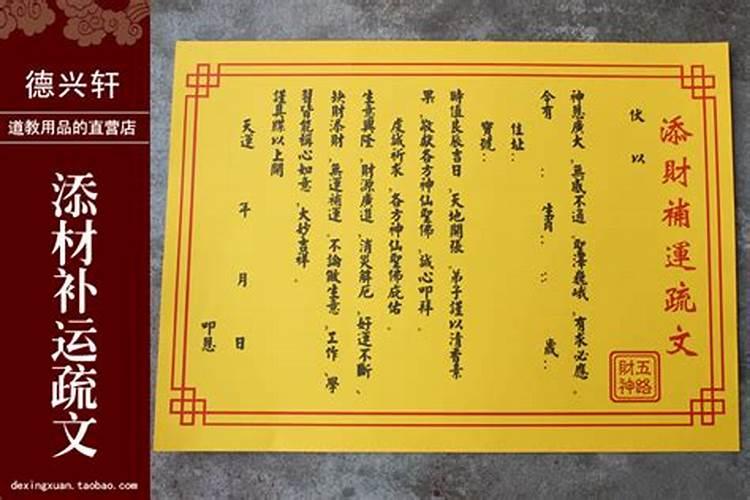 德兴轩
道教用品的直营店
添材补运疏文
dexingxuan.taobao.com
添財補運疏文
五路財神
伏以
神恩廣大、無感不通、聖澤巍峨、有求必應。
今有 : 生肖 : : 歲:
住址:
寶號:
時值良辰吉日、天地開張、弟子謹以清香素
果、敬獻各方神仙聖佛、誠心叩拜。
虔誠祈求、各方神仙聖佛庇佑。
生意興隆、財源廣進、消災解厄、好運不斷、
缺財添財、無運補運、不論做生意、工作、學
習皆能稱心如意、大妙吉祥。
謹具牒以上聞
天運 年 月 日
叩恩